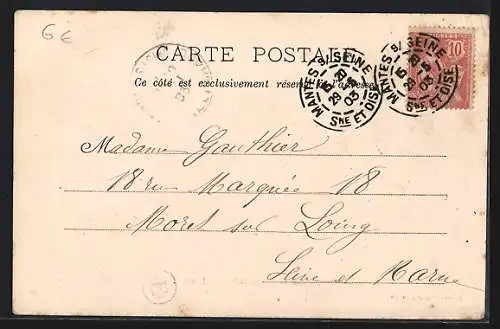 6 €
CARTE POSTALE
Ce côté est exclusivement réservé à l'adresse
MANTES S/ SEINE
29 -5
03
SNE ET OISE
MANTES S/ SEINE
29 -5
03
SNE ET OISE
10
Madame Gauthier
18 rue Marqués 18
Moret sur Loing
Seine et Marne